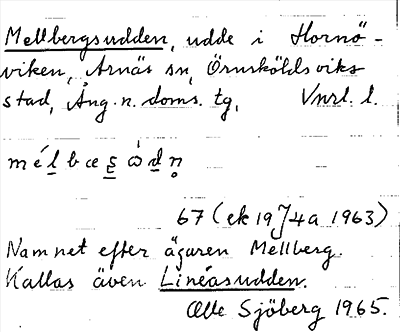 Mellbergsudden, udde i Hornö-
viken, Arnäs sn, Örnsköldsviks
stad, Ång. n. doms. tg. Vnrl. l.
67 (ek 19 J4a 1963)
Namnet efter ägaren Mellberg.
Kallas även Linéasudden.
Olle Sjöberg 1965.